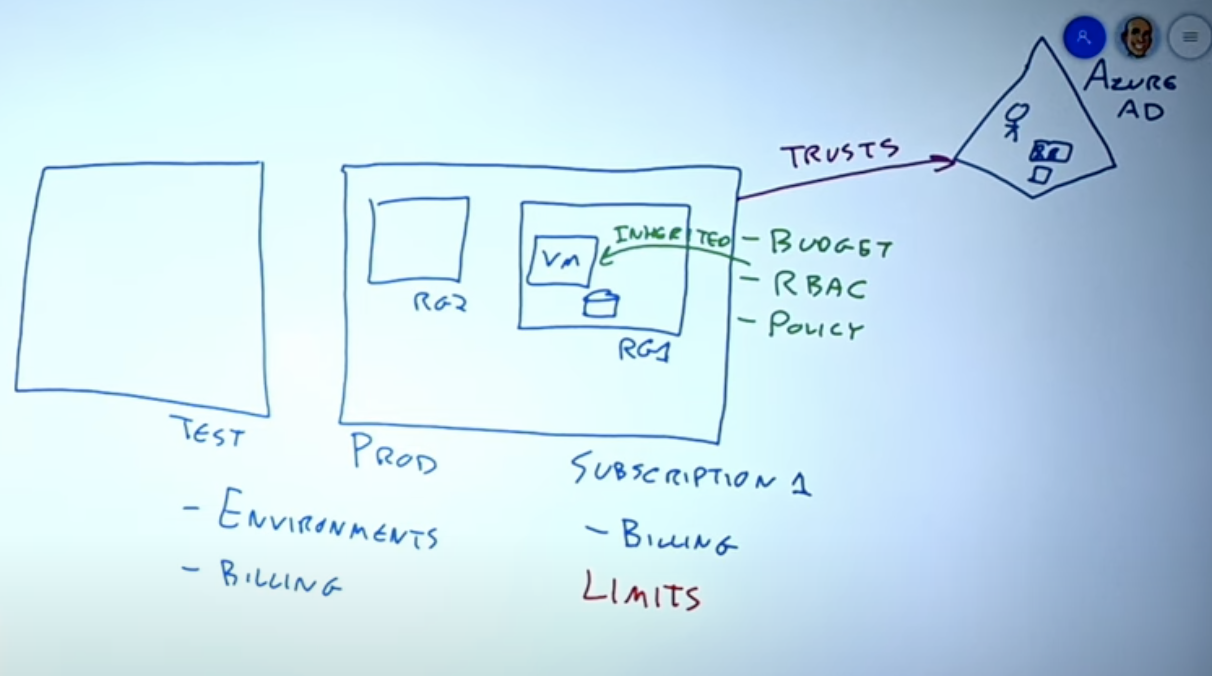 AZURE
AD
TRUSTS
INHERITED
- BUDGET
- RBAC
- POLICY
VM
RG2
RG1
TEST
PROD
SUBSCRIPTION 1
- ENVIRONMENTS
- BILLING
- BILLING
LIMITS